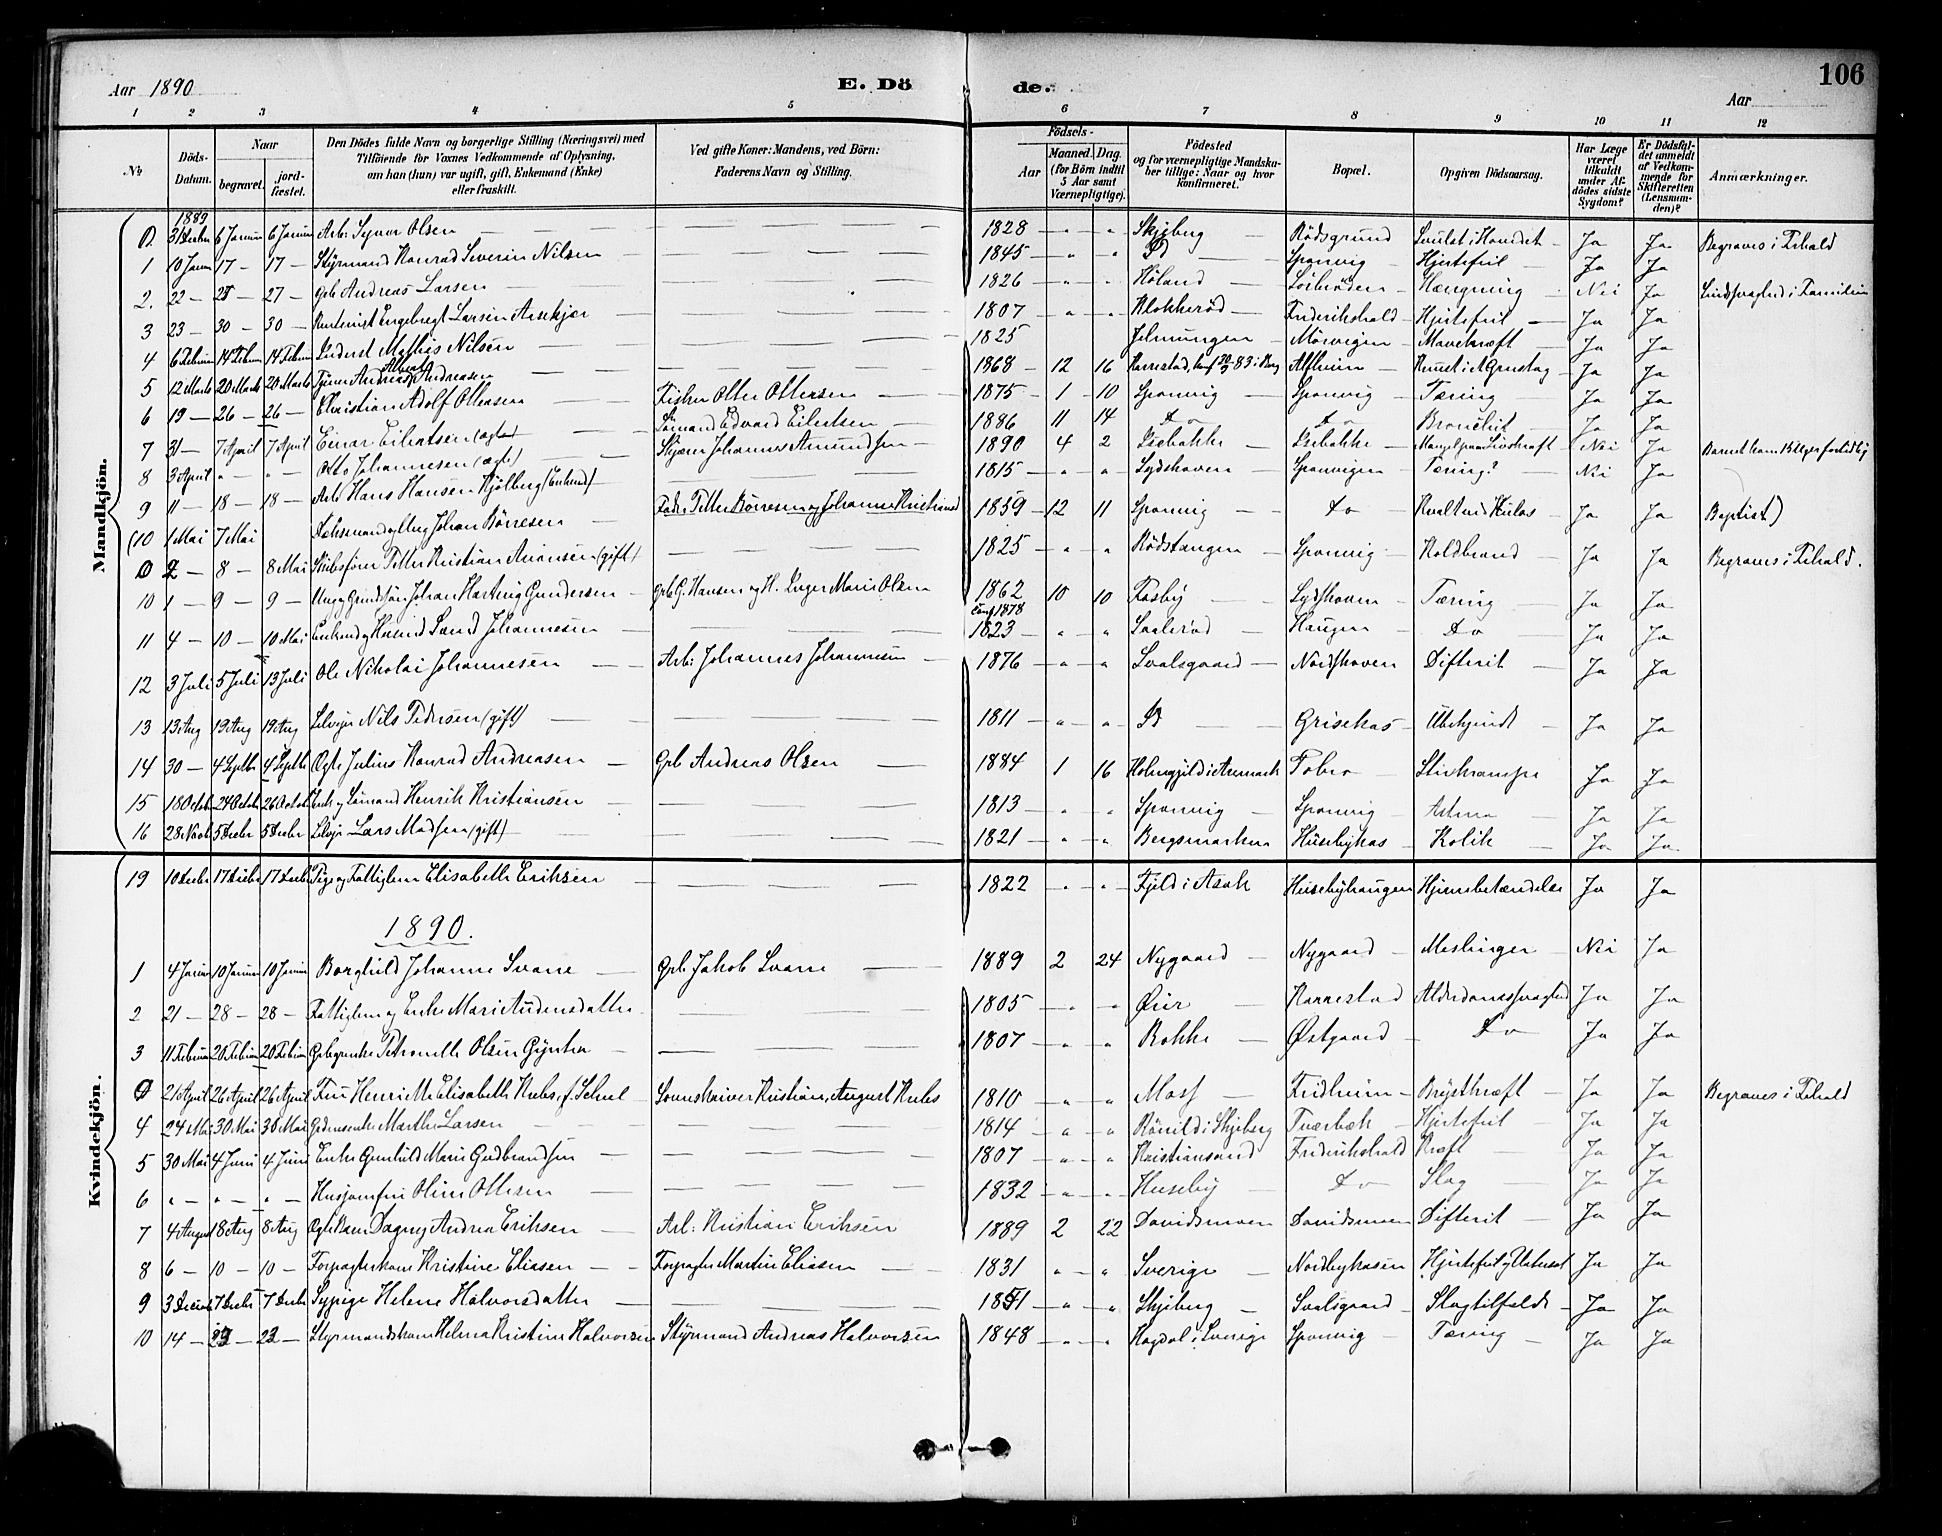 Aar 1890 E. Döde. Aar 106
1 2 3 4 5 6 7 8 9 10 11 12
No Döds-Datum. Naar begravet. jordfæstet. Den Dödes fulde Navn og borgerlige Stilling (Næringsvei) med Tilföiende for Voxnes Vedkommende af Oplysning, om han (hun) var ugift, gift, Enkemand (Enke) eller fraskilt. Ved gifte Koner: Mandens, ved Börn: Faderens Navn og Stilling. Födsels- Aar Maaned. Dag. (for Börn indtil 5 Aar samt Værnepligtige). Födested og for værnepligtige Mandskaber tillige: Naar og hvor konfirmeret. Bopæl. Opgiven Dödsaarsag. Har Læge været tilkaldt under Afdödes sidste Sygdom? Er Dödsfaldet anmeldt af Vedkommende for Skifteretten (Lensmanden)? Anmærkninger.
Mandkjön.
1889
0. 31 Decbr 6 Januar 6 Januar Arb: Olsen 1828 Skjeberg Rödsgrund Svulst i Hovedet Ja Ja Begraves i Fr.hald
1 10 Januar 17 17 Styrmand Konrad Severin Nilsen 1845 Id Sponvig Hjertefeil Ja Ja
2. 22 27 27 Grb Andreas Larsen 1826 Höland Hængning Nei Ja Sindssvaghed i Familien
3 23 30 30 Engebregt Larsen 1807 Klokkeröd Frederikshald Hjertefeil Ja Ja
4 6 Februar 14 Februar 14 Februar Mathis Nilsen 1825 Mörvigen Mavekræft Ja Ja
5 12 Marts 20 Marts 20 Marts Andreas Albert Andreasen 1868 12 16 Karrestad, konf 83 i Berg Alfheim Knust i et Grustag Ja Ja
6 19 26 26 Christian Adolf Ottersen Fisker Otter Ottersen 1875 1 10 Sponvig Sponvig Tæring Ja Ja
7 31 7 April 7 April Einar Eilertsen (ægte) Sömand Edvard Eilertsen 1886 11 14 do do Bronchit Ja Ja
8 3 April " " Otto Johannesen (ægte) Skjærer Johannes Amundsen 1890 4 2 Isebakke Isebakke Mangel paa Livskraft Nei Ja
9 11 18 18 Arb Hans Hansen Kjölberg (Enkemd) 1815 " " Sydshaven Sponvigen Tæring? Nei Ja
(10 1 Mai 7 Mai Johan Börresen Fadr. Petter Börresen og Johanne Kristiansd 1859 12 11 Sponvig do Kvalt ved Kulos Ja Ja Baptist)
0 2 8 8 Mai Skibsförer Petter Kristian Arionsen (gift) 1825 " " Rödstangen Sponvig Koldbrand Ja Ja Begraves i Fr.hald.
10 1 9 9 Ung. Johan Hartvig Gundersen Grb G. Hansen og H. Inger Marie Olsen 1862 10 10 Fosby Sydshaven Tæring Ja Ja
conf 1878
11 4 10 10 Mai Enkemd og Husmd Svend Johannesen 1823 " " Haugen do Ja Ja
12 3 Juli 5 Juli 13 Juli Ole Nikolai Johannesen Arb: Johannes Johannesen 1876 " " Svalsgaard Nordshoven Difterit Ja Ja
13 13 Aug 19 Aug 19 Aug Selveier Nils Pedersen (gift) 1811 " " Id Grisekas Ubekjendt Ja Ja
14 30 4 Septbr 4 Septbr Ægte Julius Konrad Andreasen Grb Andreas Olsen 1884 1 16 Holmegjild i Aremark Tobro Stivkrampe Ja Ja
15 18 Octob 24 Octob 26 Octob Enkm og Sömand Henrik Kristiansen 1813 " " Sponvig Sponvig Astma Ja Ja
16 28 Novb 5 Decbr 5 Decbr Selveier Lars Madsen (gift) 1821 " " Bergsmarken Husebykas Kolik Ja Ja
19 10 Decbr 17 Decbr 17 Decbr Pige og Fattiglem Elisabeth Eriksen 1822 " " Fjeld i Asak Husebyhaugen Hjernebetændelse Ja Ja
1890.
Kvindekjön.
1 4 Januar 10 Januar 10 Januar Borghild Johanne Svane Grb Jakob Svane 1889 2 24 Nygaard Nygaard Meslinger Nei Ja
2 21 28 28 Fattiglem og Enke Mari Audensdatter 1805 " " Öier Karrestad Alderdomssvaghed Ja Ja
3 11 Februar 20 Februar 20 Februar Petronelle Olsen 1807 " " Bokke Østgaard do Ja Ja
0 21 April 26 April 26 April Fru Henriette Elisabeth Kubs, f. Sorenskriver Kristian August Kubs 1810 " " Moss Fridheim Brystkræft Ja Ja Begraves i Fr.hald
4 24 Mai 30 Mai 30 Mai Marthe Larsen 1814 " " i Skjeberg Tværbæk Hjertefeil Ja Ja
5 30 Mai 4 Juni 4 Juni Enke Gunhild Marie Gudbrandsen 1807 " " Kristiansand Frederikshald Kræft Ja Ja
6 " " " Husjomfru Oline Ottesen 1832 " " Huseby do Slag Ja Ja
7 4 August 8 Aug 8 Aug Ægte Barn Dagny Andrea Eriksen Arb: Kristian Eriksen 1889 2 22 Davidsmoen Davidsmoen Difterit Ja Ja
8 6 10 10 Forpagterkone Kristine Eliasen Forpagter Martin Eliasen 1831 " " Sverige Nordbykasen Hjertefeil og Vatersot Ja Ja
9 3 Decbr 7 Decbr 7 Decbr Sypige Helene Halvorsdatter 1851 " " Skjeberg Svalsgaard Slagtilfælde Ja Ja
10 14 23 23 Styrmandskone Helma Kristine Halvorsen Styrmand Andreas Halvorsen 1848 " " Hogdal i Sverige Sponvig Tæring Ja Ja